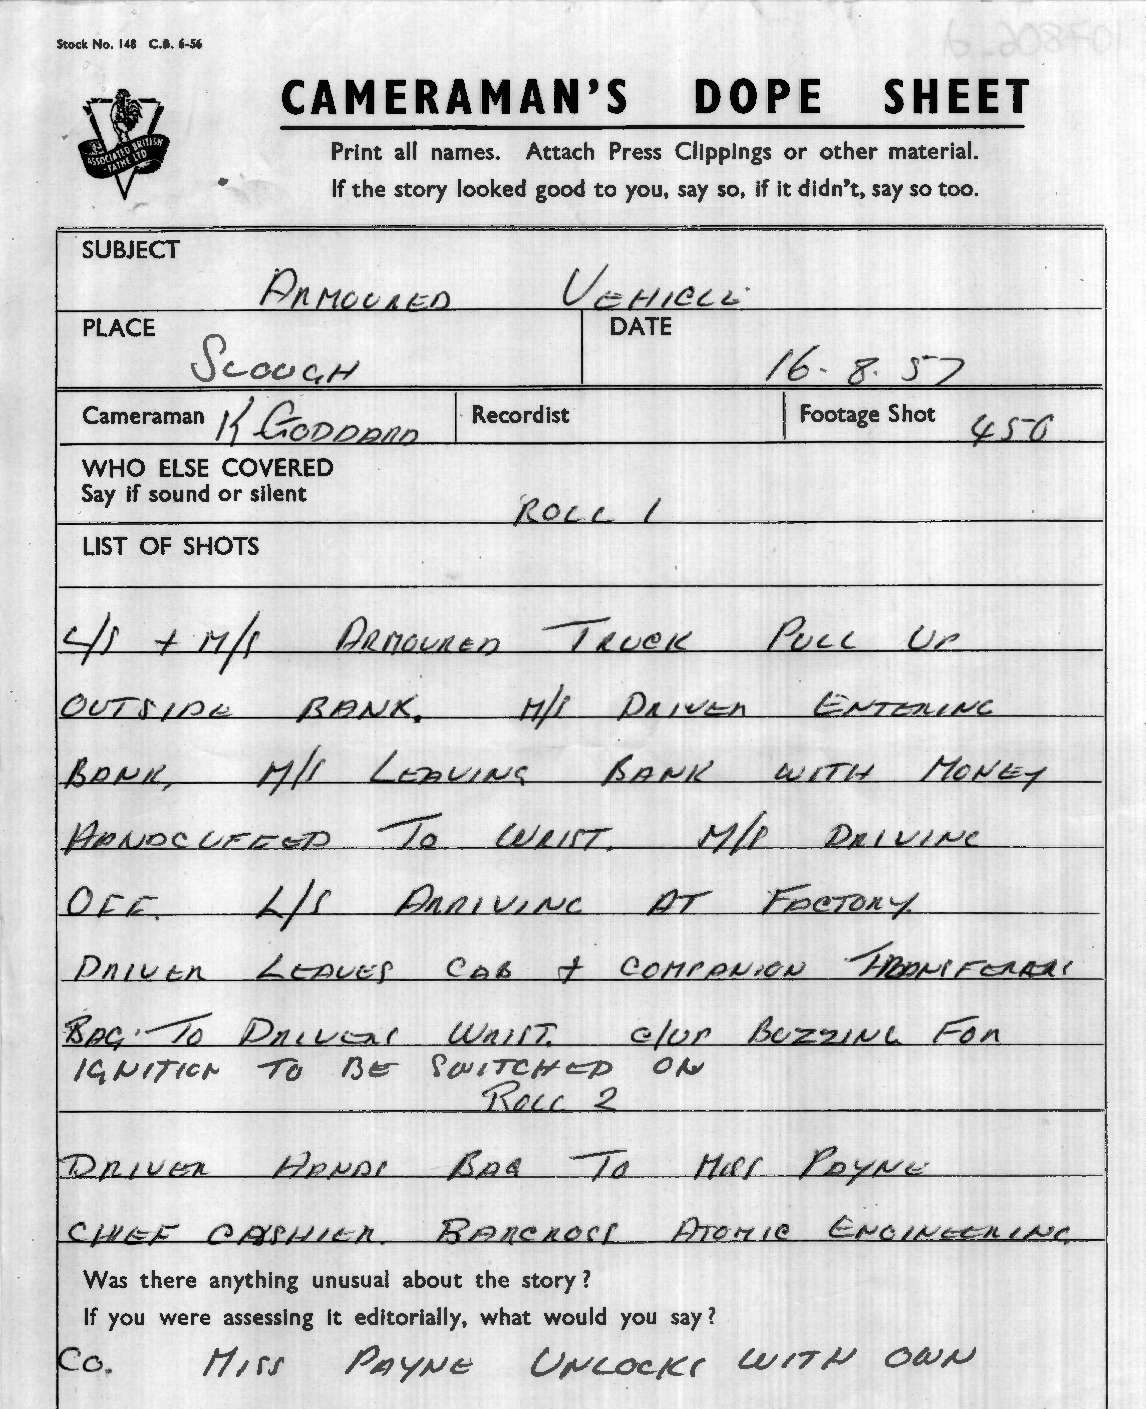 Stock No. 148 C.B. 6-56
CAMERAMAN'S DOPE SHEET
ASSOCIATED BRITISH
PATHE LTD
Print all names. Attach Press Clippings or other material.
If the story looked good to you, say so, if it didn't, say so too.
SUBJECT
ARMOURED VEHICLE
PLACE
SLOUGH
DATE
16.8.57
Cameraman K GODDARD
Recordist
Footage Shot 450
WHO ELSE COVERED
Say if sound or silent
ROLL 1
LIST OF SHOTS
L/S + M/S ARMOURED TRUCK PULL UP
OUTSIDE BANK. M/S DRIVER ENTERING
BANK, M/S LEAVING BANK WITH MONEY
HANDCUFFED TO WRIST. M/S DRIVING
OFF. L/S ARRIVING AT FACTORY.
DRIVER LEAVES CAB + COMPANION TRANSFERERS
BAG TO DRIVERS WRIST. C/UP BUZZING FOR
IGNITION TO BE SWITCHED ON
ROLL 2
DRIVER HANDS BAG TO MISS PAYNE
CHIEF CASHIER. BARCROSS ATOMIC ENGINEERING
Was there anything unusual about the story?
If you were assessing it editorially, what would you say?
CO. MISS PAYNE UNLOCKS WITH OWN